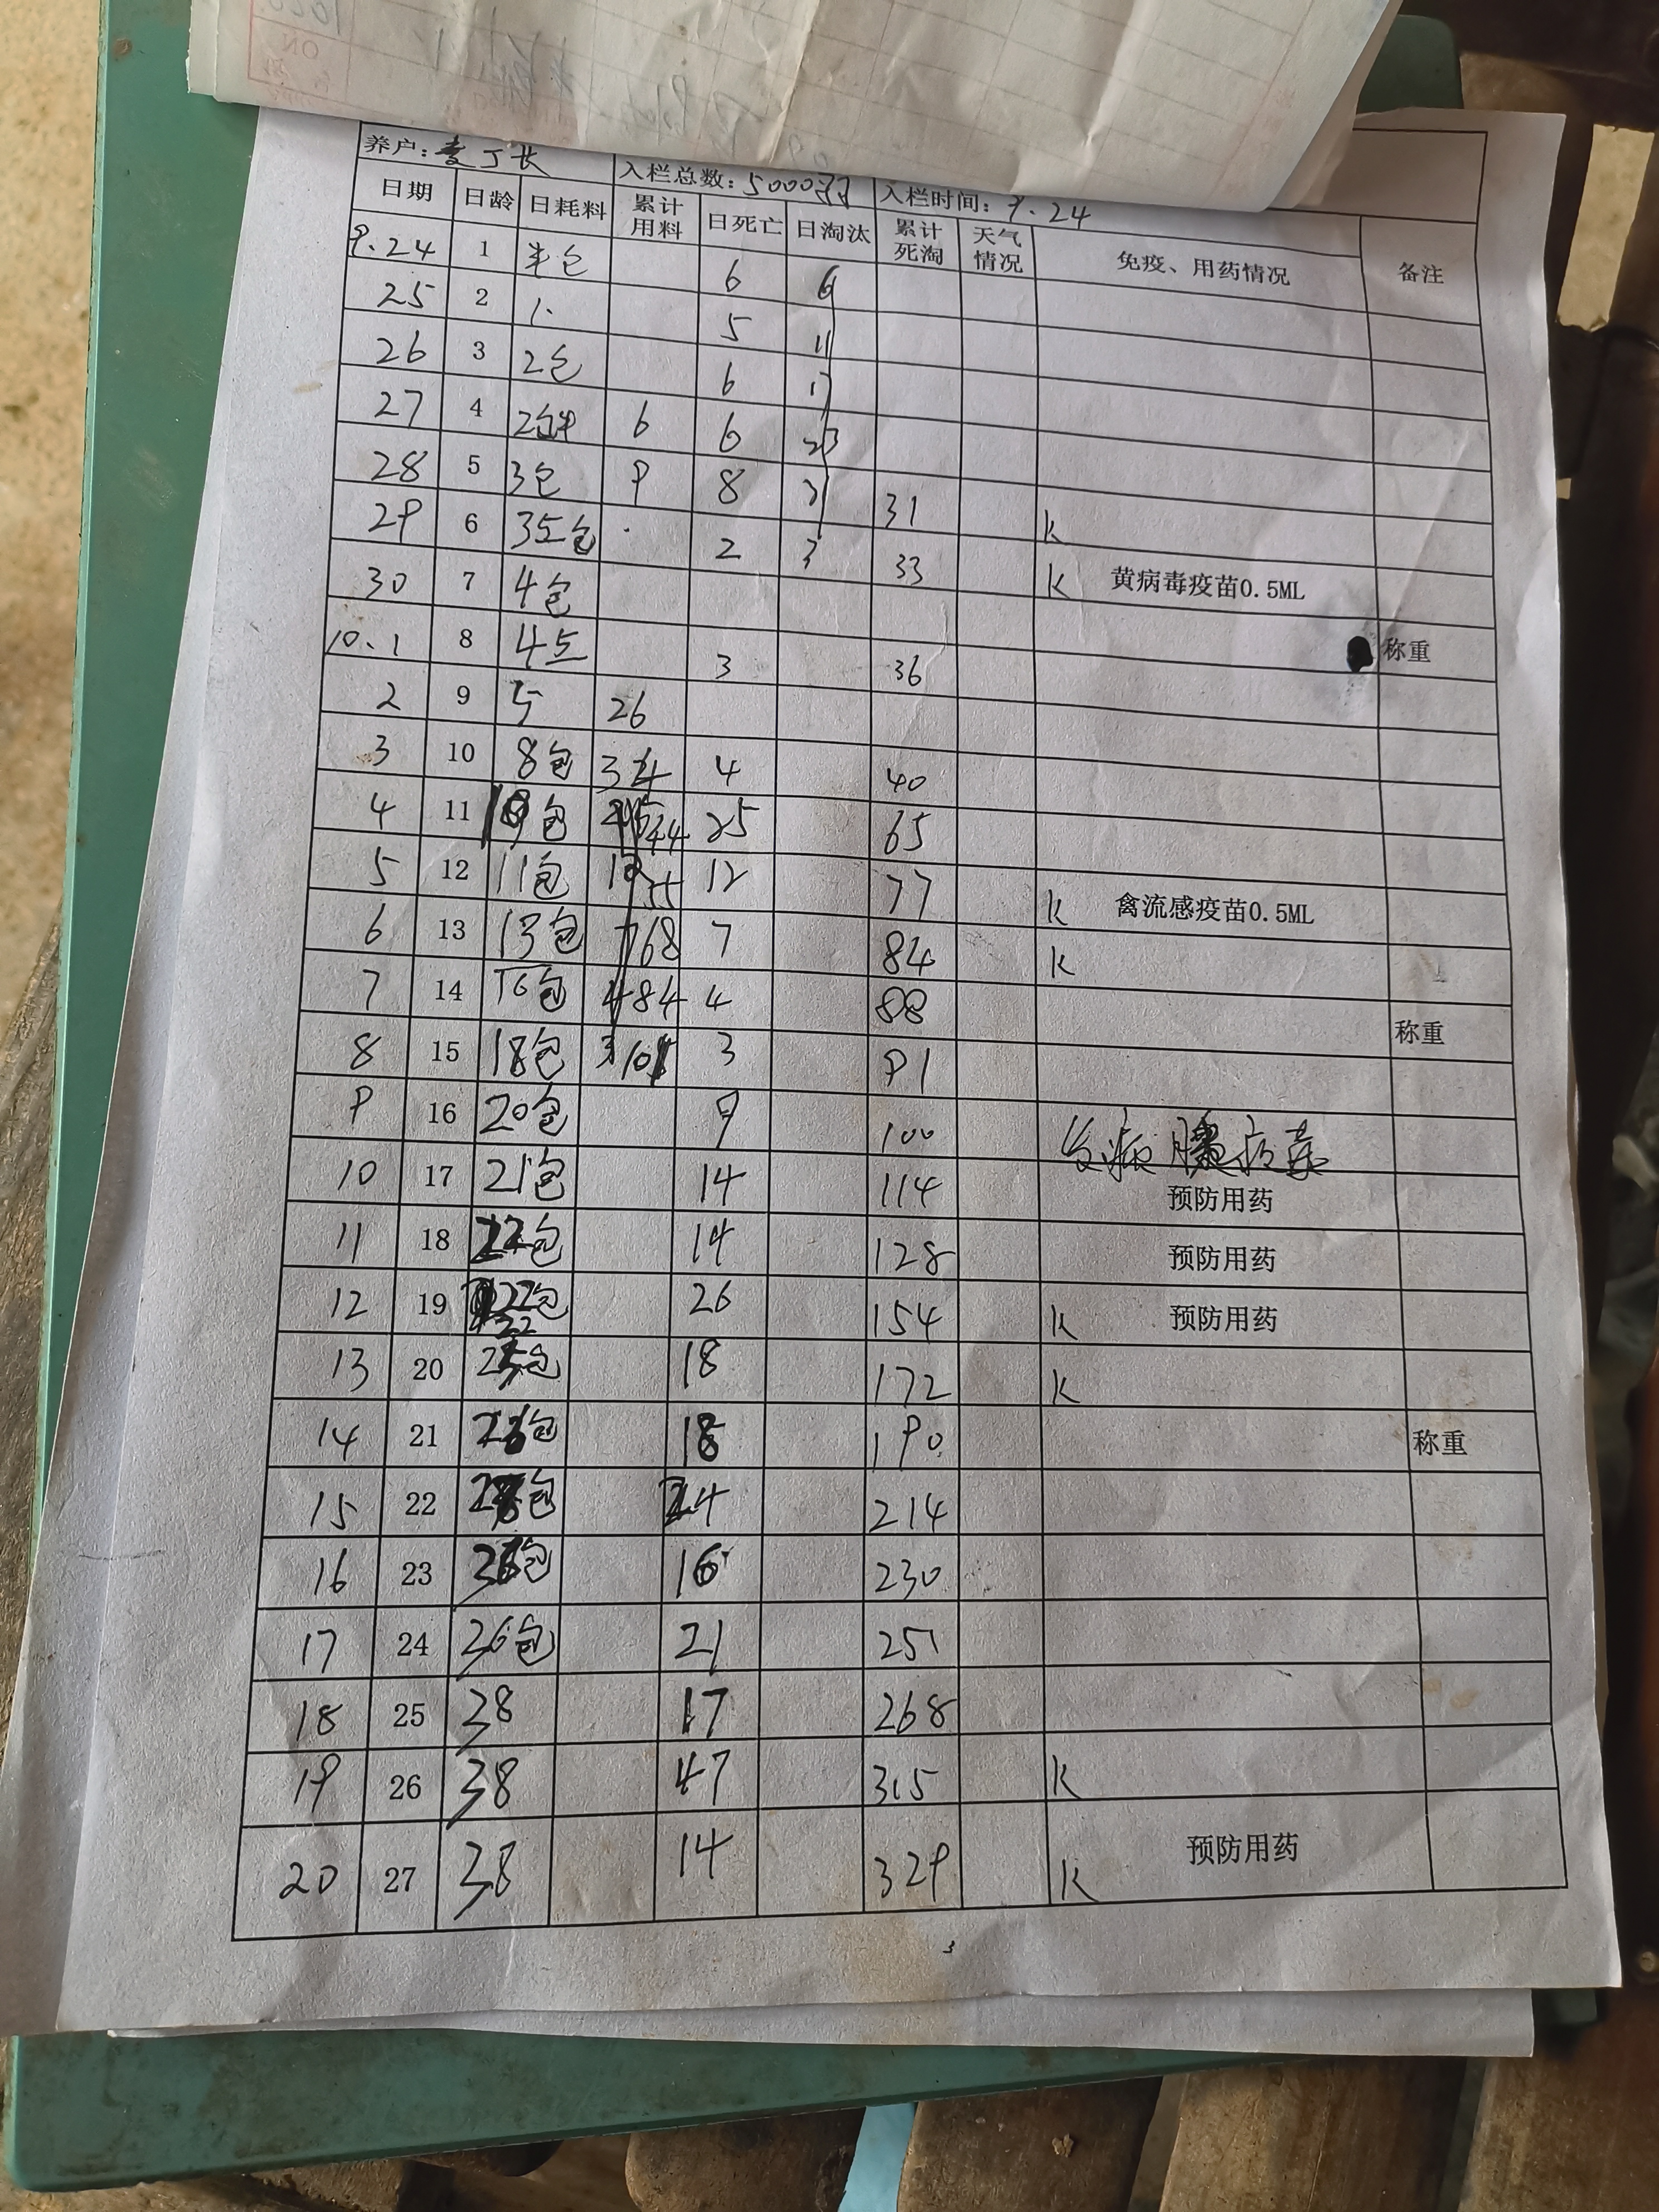 养户: 入栏总数: 5000羽 入栏时间: 9.24
日期 日龄 日耗料 累计用料 日死亡 日淘汰 累计死淘 天气情况 免疫、用药情况 备注
9.24 1 半包 6 6
25 2 1. 5 11
26 3 2包 6 17
27 4 2包半 6 6 23
28 5 3包 9 8 31 31 k
29 6 3.5包 2 3 33 k 黄病毒疫苗0.5ML
30 7 4包 称重
10.1 8 4.5 3 36
2 9 5 26
3 10 8包 34 4 40
4 11 包 44 25 65
5 12 11包 55 12 77 k 禽流感疫苗0.5ML
6 13 13包 68 7 84 k
7 14 16包 84 4 88 称重
8 15 18包 10 3 91
9 16 20包 9 100 发病 病毒
10 17 21包 14 114 预防用药
11 18 22包 14 128 预防用药
12 19 22包 26 154 k 预防用药
22
13 20 包 18 172 k
14 21 包 18 190 称重
15 22 包 24 214
16 23 包 16 230
17 24 36包 21 251
18 25 38 17 268
19 26 38 47 315 k
20 27 38 14 329 k 预防用药